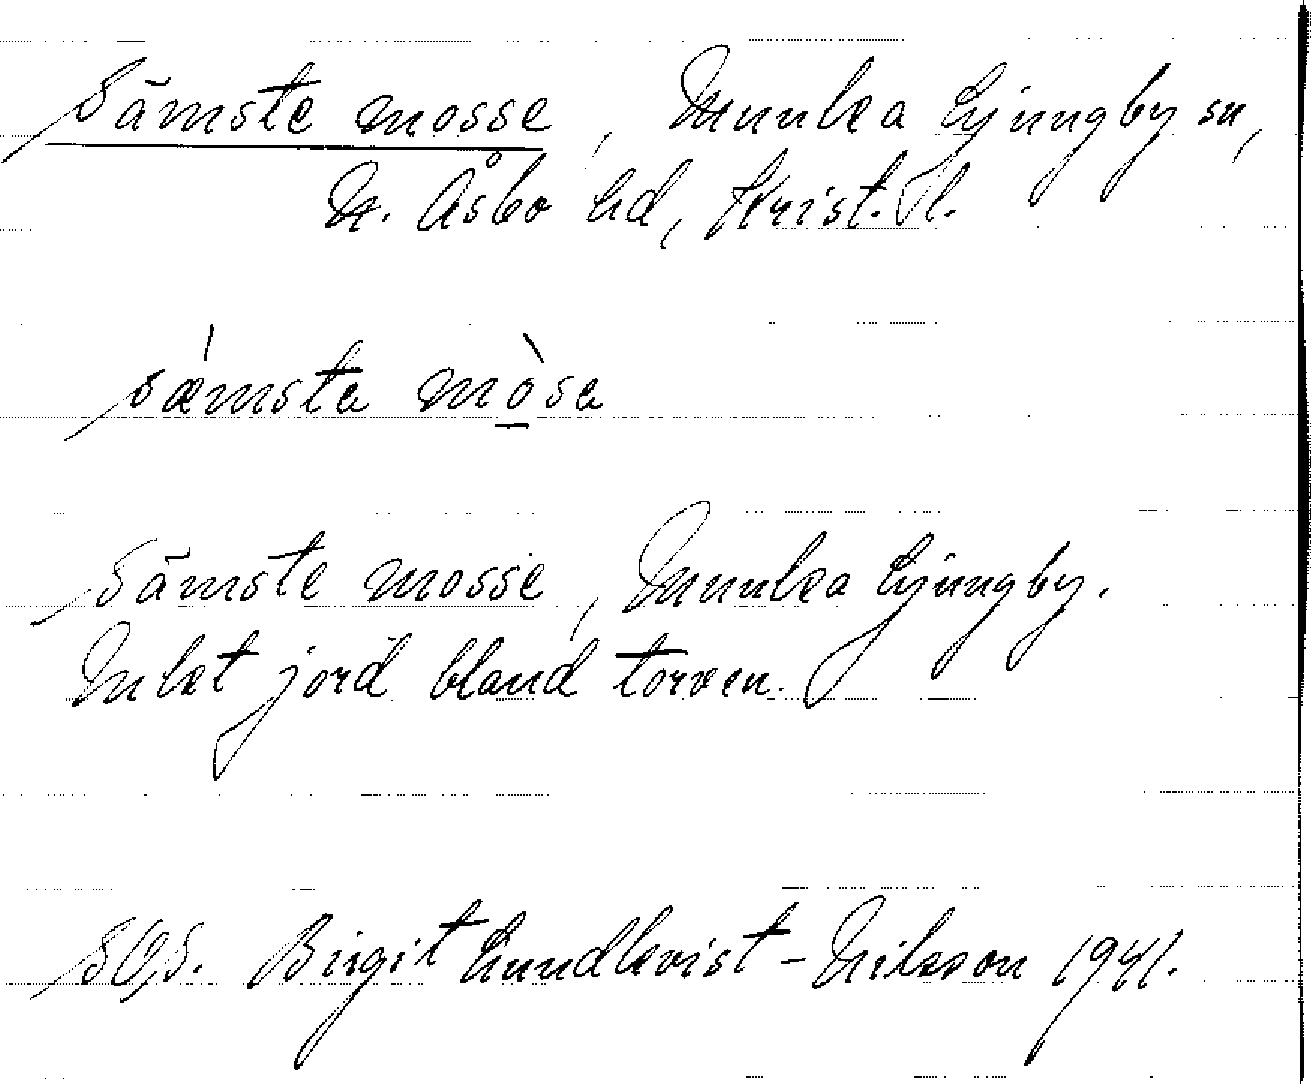 Sämste mosse, Munka Ljungby sn,
N. Åsbo hd, Krist. l.
sæ̀msta mo̱̍sa
Sämste mosse, Munka Ljungby.
Mlkt jord bland torven.
SOS. Birgit Lundkvist-Nilsson 1941.